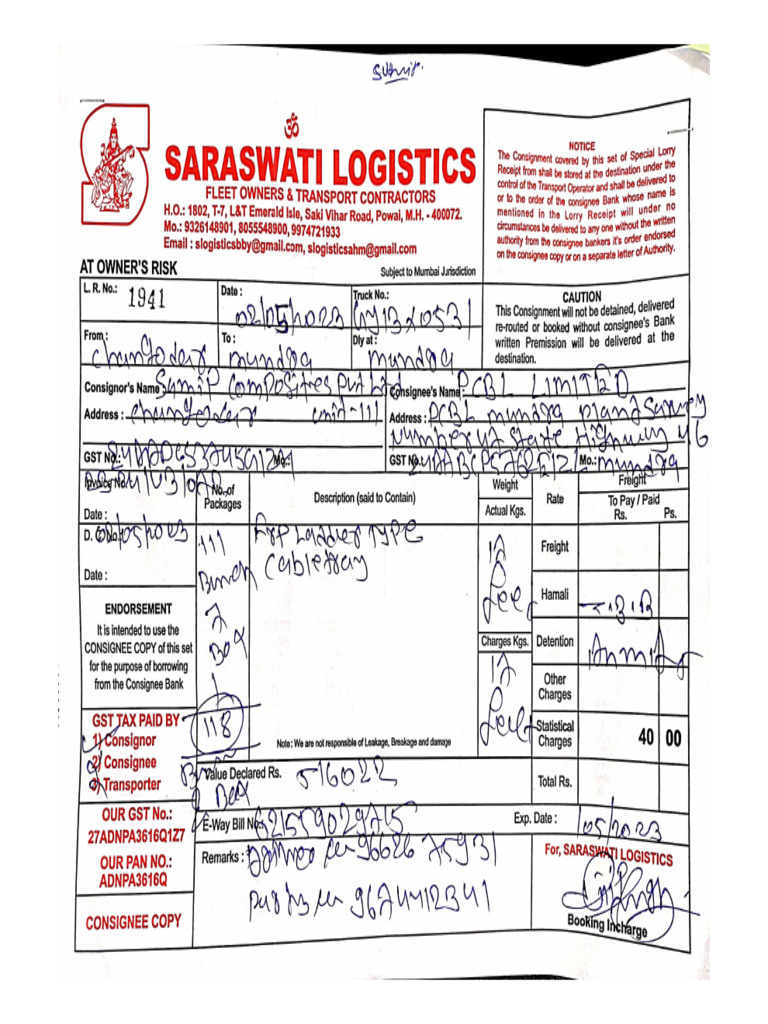 Sumit.
ॐ
SARASWATI LOGISTICS
FLEET OWNERS & TRANSPORT CONTRACTORS
H.O.: 1802, T-7, L&T Emerald Isle, Saki Vihar Road, Powai, M.H. - 400072.
Mo.: 9326148901, 8055548900, 9974721933
Email : slogisticsbby@gmail.com, slogisticsahm@gmail.com
NOTICE
The Consignment covered by this set of Special Lorry
Receipt from shall be stored at the destination under the
control of the Transport Operator and shall be delivered to
or to the order of the consignee Bank whose name is
mentioned in the Lorry Receipt will under no
circumstances be delivered to any one without the written
authority from the consignee bankers it's order endorsed
on the consignee copy or on a separate letter of Authority.
AT OWNER'S RISK
Subject to Mumbai Jurisdiction
L.R. No.: 1941
Date : 02/05/2023
Truck No.:
CAUTION
This Consignment will not be detained, delivered
re-routed or booked without consignee's Bank
written Premission will be delivered at the
destination.
From :
To : mundra
Dly at : mundra
Consignor's Name : Sumip Composites Pvt Ltd
Consignee's Name : PCBL LIMITED
Address : unit-111
Address : PCBL mundra Survey
Number State Highway 46
GST No.:
Mo.:
GST No.:
Mo.: mundra
Invoice No.:
Date :
No. of
Packages
Description (said to Contain)
Weight
Actual Kgs.
Rate
Freight
To Pay / Paid
Rs. Ps.
D. O. No.: 02/05/2023
Date :
111
Bunch
7
Box
FRP Ladder TYPE
Cabletray
Freight
Hamali
T.B.B
Charges Kgs.
Detention
Other
Charges
Statistical
Charges
40 00
Total Rs.
ENDORSEMENT
It is intended to use the
CONSIGNEE COPY of this set
for the purpose of borrowing
from the Consignee Bank
GST TAX PAID BY
1) Consignor
2) Consignee
3) Transporter
118
Box
Note : We are not responsible of Leakage, Breakage and damage
Value Declared Rs. 516022
OUR GST No.:
27ADNPA3616Q1Z7
OUR PAN NO.:
ADNPA3616Q
E-Way Bill No.:
Exp. Date : /05/2023
Remarks :
For, SARASWATI LOGISTICS
Booking Incharge
CONSIGNEE COPY